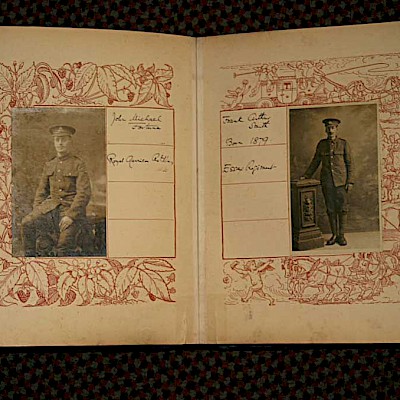 John Michael
Royal Garrison
Frank Arthur
Smith
Born 1879
Essex Regiment